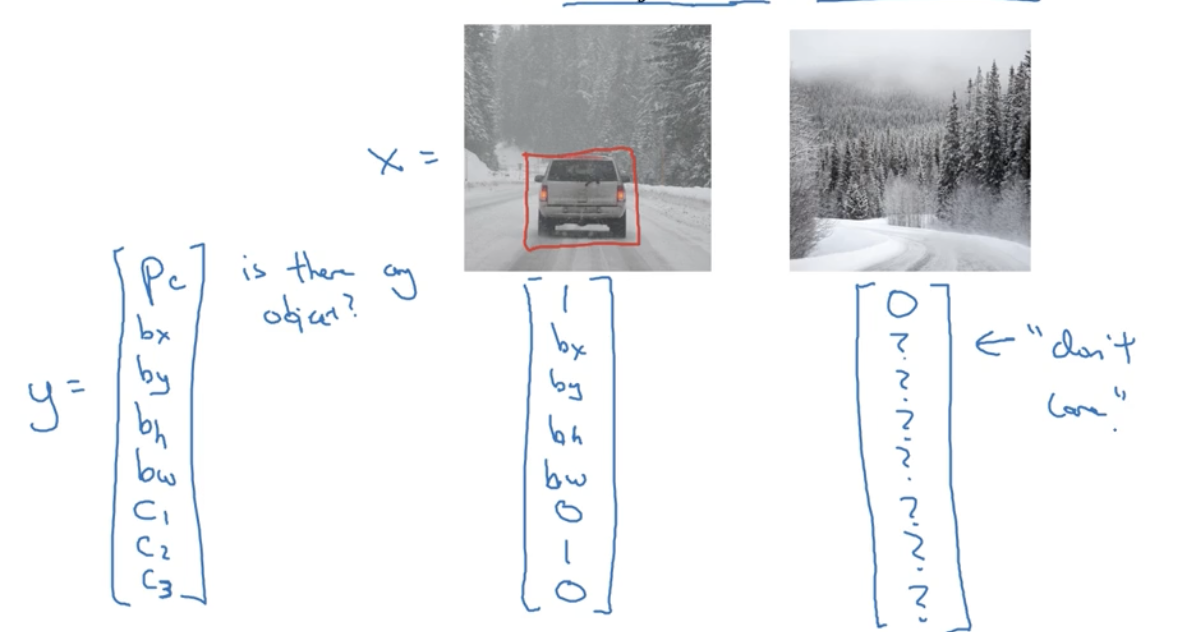 x =
y =
Pc
bx
by
bh
bw
C1
C2
C3
is there any
object?
1
bx
by
bh
bw
0
1
0
0
?
?
?
?
?
?
?
← "don't
care".